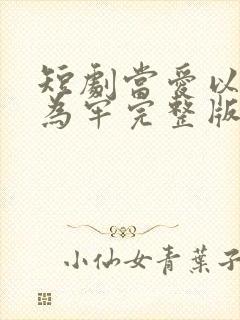 短劇當愛以
為牢完整版
小仙女青葉子